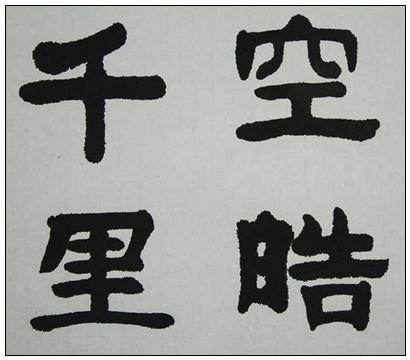 空皓
千里